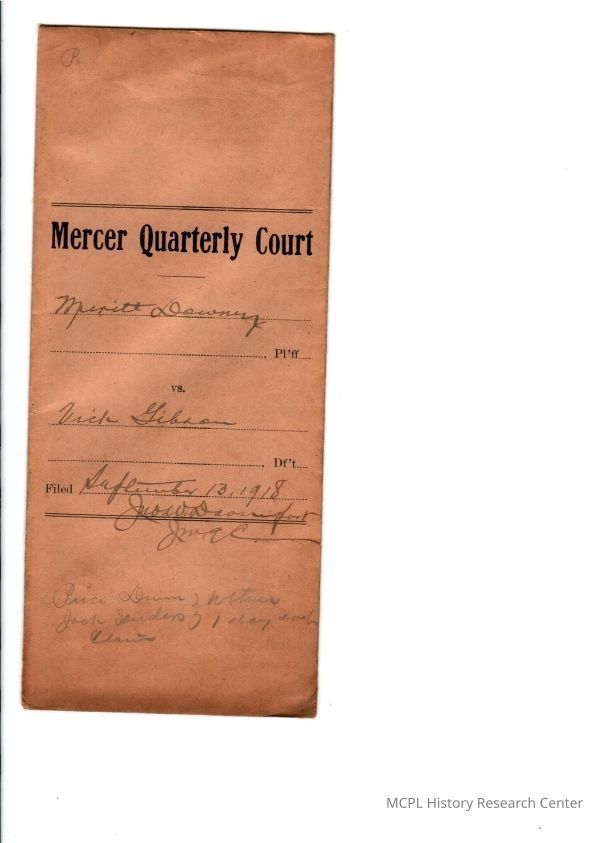 P.
Mercer Quarterly Court
Meritt Downey
, Pl'ff
vs.
Vick Gibson
, Df't
Filed September 13, 1918
Jno. W. Davenport
J.M.Q.C.
Price Dunn } Witness
Jack Sanders } 1 day each
Claim
MCPL History Research Center